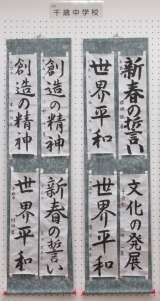 千歳中学校
新春の誓い
世界平和
創造の精神
創造の精神
文化の発展
世界平和
新春の誓い
世界平和